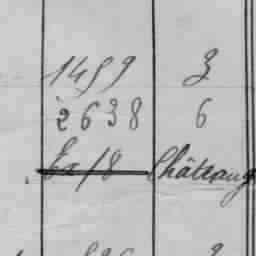 1499 3
2638 6
Ex/8 Châteaug